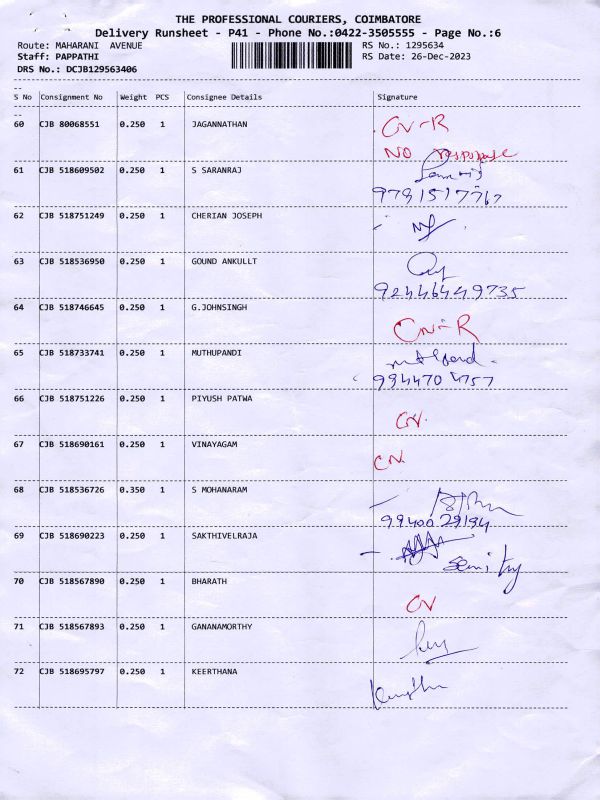 THE PROFESSIONAL COURIERS, COIMBATORE
Delivery Runsheet - P41 - Phone No.:0422-3505555 - Page No.:6
Route: MAHARANI AVENUE RS No.: 1295634
Staff: PAPPATHI RS Date: 26-Dec-2023
DRS No.: DCJB129563406
--
S No Consignment No Weight PCS Consignee Details Signature
--
60 CJB 80068551 0.250 1 JAGANNATHAN CN-R
NO response
61 CJB 518609502 0.250 1 S SARANRAJ
9791517767
62 CJB 518751249 0.250 1 CHERIAN JOSEPH
63 CJB 518536950 0.250 1 GOUND ANKULLT
92446449735
64 CJB 518746645 0.250 1 G.JOHNSINGH
CN-R
65 CJB 518733741 0.250 1 MUTHUPANDI
66 CJB 518751226 0.250 1 PIYUSH PATWA
CN.
67 CJB 518690161 0.250 1 VINAYAGAM
CN.
68 CJB 518536726 0.350 1 S MOHANARAM
99400 29194
69 CJB 518690223 0.250 1 SAKTHIVELRAJA
70 CJB 518567890 0.250 1 BHARATH
CN
71 CJB 518567893 0.250 1 GANANAMORTHY
72 CJB 518695797 0.250 1 KEERTHANA